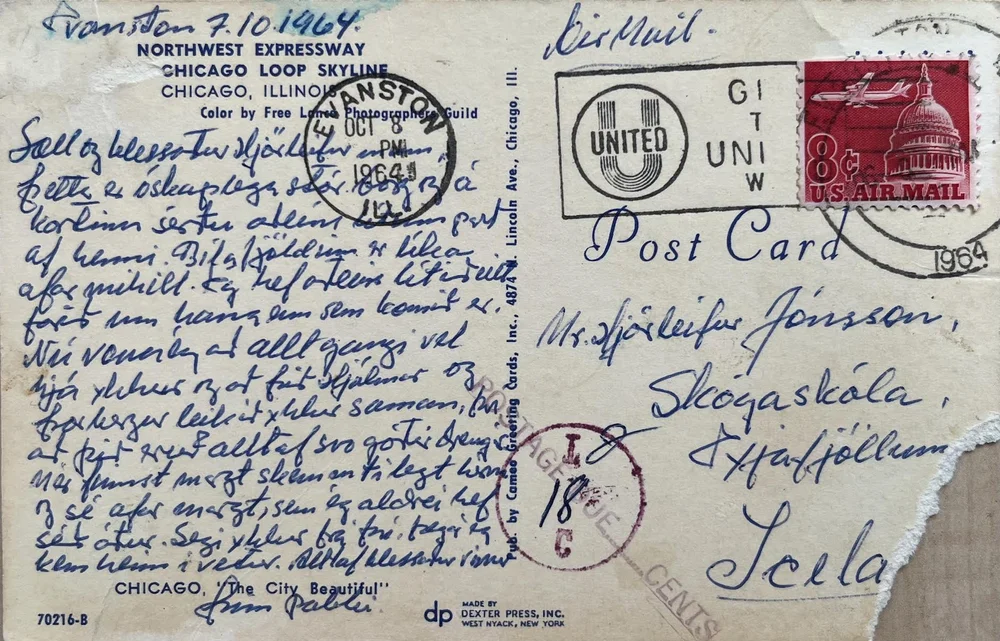 Evanston 7.10.1964.
NORTHWEST EXPRESSWAY
CHICAGO LOOP SKYLINE
CHICAGO, ILLINOIS
Color by Free Lance Photographers Guild
Sæll og blessaður Hjörleifur minn,
Þetta er óskaplega stór borg og á
kortinu sérðu aðeins part
af henni. Bílafjöldinn er líka
afar mikill. Ég hef aðeins lítið
farið um hana enn sem komið er.
Nú vona ég að allt gangi vel
hjá ykkur og að þið Hjálmar og
Þorgeir leikið ykkur saman, því
að þið eruð alltaf svo góðir drengir
Mér finnst margt skemmtilegt hér
og sé afar margt, sem ég aldrei hef
séð áður. Segi ykkur frá því, þegar ég
kem heim í vetur. Alltaf blessaður
þinn pabbi.
CHICAGO, "The City Beautiful"
70216-B
Pub. by Cameo Greeting Cards, Inc., 4874 N. Lincoln Ave., Chicago, Ill.
dp
MADE BY
DEXTER PRESS, INC.
WEST NYACK, NEW YORK
EVANSTON
OCT 8
PM
1964
ILL.
Air Mail.
UNITED
GI
T
UNI
W
8¢
U.S. AIR MAIL
1964
Post Card
Mr. Hjörleifur Jónsson,
Skógaskóla,
Eyjafjöllum
Icela
POSTAGE DUE CENTS
I
18
C